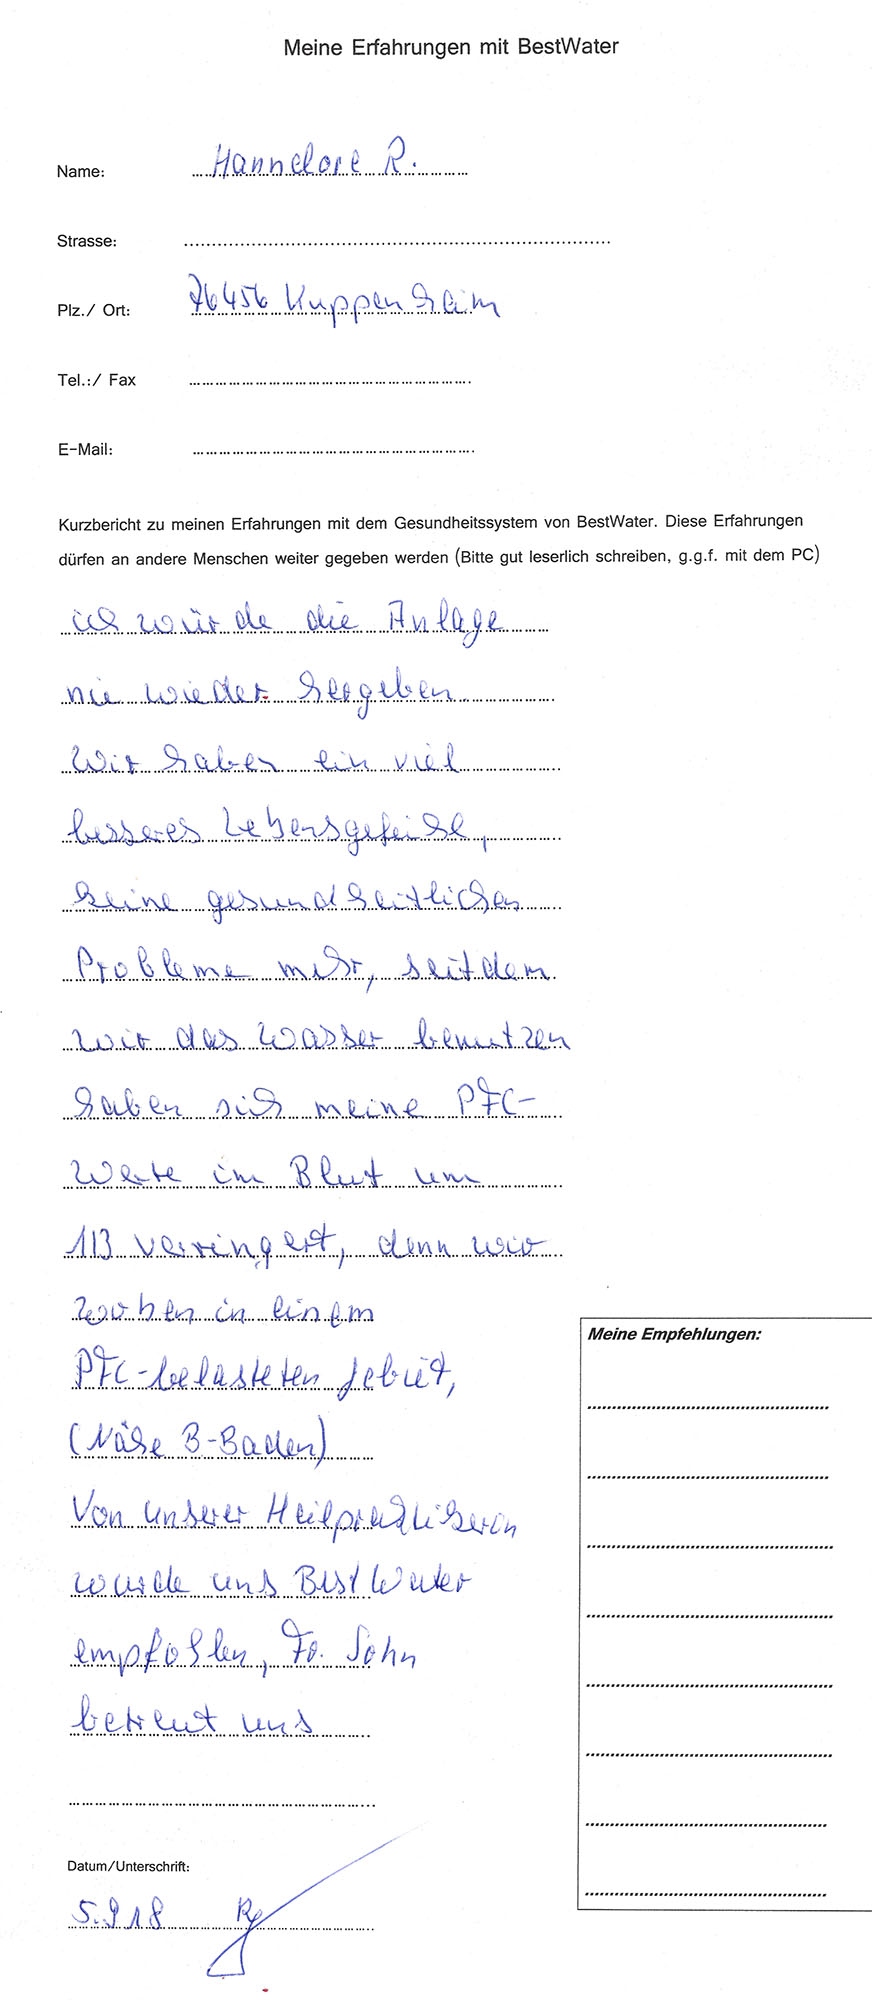 Meine Erfahrungen mit BestWater
Name: Hannelore R.
Strasse:
Plz./ Ort: 76456 Kuppenheim
Tel.:/ Fax
E-Mail:
Kurzbericht zu meinen Erfahrungen mit dem Gesundheitssystem von BestWater. Diese Erfahrungen
dürfen an andere Menschen weiter gegeben werden (Bitte gut leserlich schreiben, g.g.f. mit dem PC)
ich würde die Anlage
nie wieder hergeben
Wir haben ein viel
besseres Lebensgefühl,
keine gesundheitlichen
Probleme mehr, seitdem
wir das Wasser benutzen
haben sich meine PFC-
Werte im Blut um
1/3 verringert, denn wir
wohnen in einem
PFC-belasteten Gebiet,
(Nähe B-Baden)
Von unserer Heilpraktikerin
wurde uns BestWater
empfohlen, Fa. Sohn
betreut uns
Meine Empfehlungen:
Datum/Unterschrift:
5.9.18